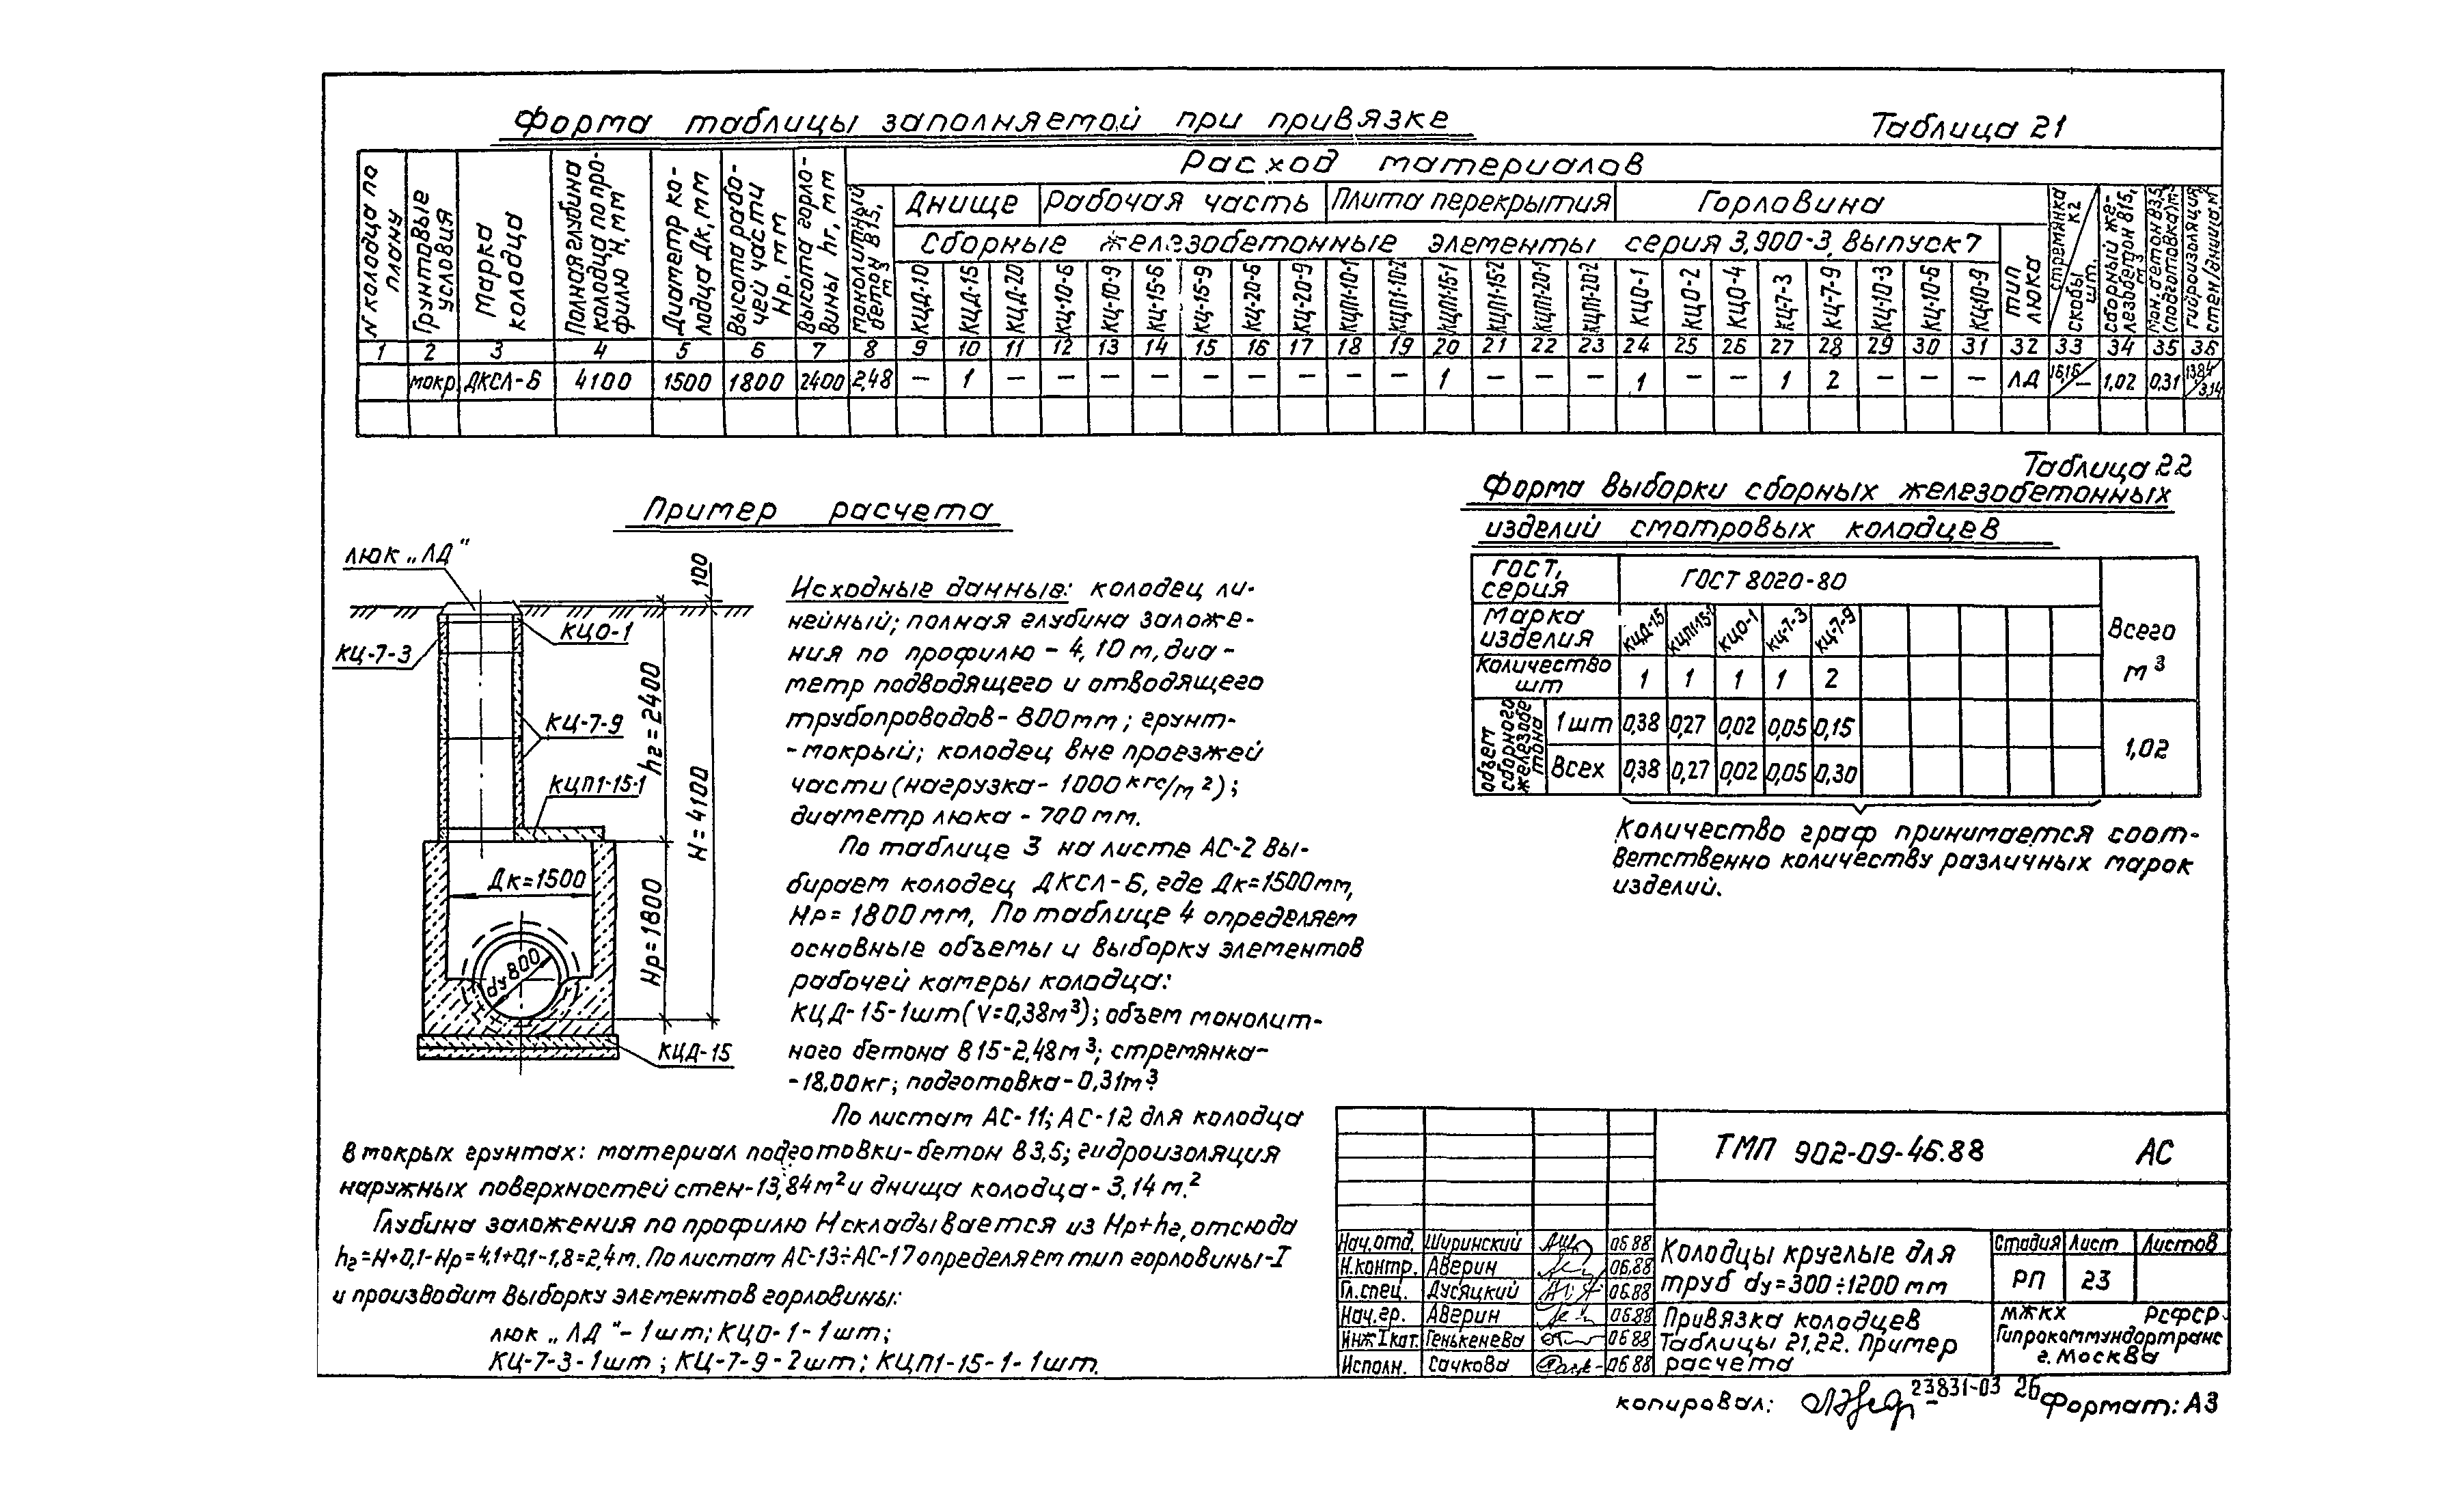 Форма таблицы заполняемой при привязке
Таблица 21
N колодца по плану
Грунтовые условия
Марка колодца
Полная глубина колодца по профилю Н, мм
Диаметр колодца Дк, мм
Высота рабочей части Нр, мм
Высота горловины hг, мм
Расход материалов
монолитный бетон В15, м3
Днище
Рабочая часть
Плита перекрытия
Горловина
Сборные железобетонные элементы серия 3.900-3, выпуск 7
КЦД-10 КЦД-15 КЦД-20 КЦ-10-6 КЦ-10-9 КЦ-15-6 КЦ-15-9 КЦ-20-6 КЦ-20-9 КЦП1-10-1 КЦП1-10-2 КЦП1-15-1 КЦП1-15-2 КЦП1-20-1 КЦП1-20-2 КЦО-1 КЦО-2 КЦО-4 КЦ-7-3 КЦ-7-9 КЦ-10-3 КЦ-10-6 КЦ-10-9
тип люка
стремянка кг
скобы шт.
сборный железобетон В15, м3
мон. бетон В3,5 (подготовка) м3
гидроизоляция стен/днища м2
1 2 3 4 5 6 7 8 9 10 11 12 13 14 15 16 17 18 19 20 21 22 23 24 25 26 27 28 29 30 31 32 33 34 35 36
мокр. ДКСЛ-Б 4100 1500 1800 2400 2,48 — 1 — — — — — — — — — 1 — — — 1 — — 1 2 — — — ЛД 16,16/— 1,02 0,31 13,84/3,14
Пример расчета
люк „ЛД"
100
КЦО-1
КЦ-7-3
КЦ-7-9
КЦП1-15-1
hг=2400
Н=4100
Дк=1500
Нр=1800
dу800
КЦД-15
Исходные данные: колодец ли-
нейный; полная глубина заложе-
ния по профилю - 4,10 м, диа-
метр подводящего и отводящего
трубопроводов - 800мм; грунт-
-мокрый; колодец вне проезжей
части (нагрузка - 1000 кгс/м2);
диаметр люка - 700 мм.
По таблице 3 на листе АС-2 вы-
бираем колодец ДКСЛ-Б, где Дк=1500мм,
Нр=1800мм, По таблице 4 определяем
основные объемы и выборку элементов
рабочей камеры колодца:
КЦД-15-1шт (V=0,38м3); объем монолит-
ного бетона В15-2,48м3; стремянка-
-18.00кг; подготовка-0,31м3.
По листам АС-11; АС-12 для колодца
в мокрых грунтах: материал подготовки-бетон В3,5; гидроизоляция
наружных поверхностей стен-13,84м2 и днища колодца-3,14м.2
Глубина заложения по профилю Н складывается из Нр+hг, отсюда
hг=Н+0,1-Нр=4,1+0,1-1,8=2,4м. По листам АС-13÷АС-17 определяем тип горловины-I
и производим выборку элементов горловины:
люк „ЛД"-1шт; КЦО-1-1шт;
КЦ-7-3-1шт; КЦ-7-9-2шт; КЦП1-15-1-1шт.
Таблица 22
Форма выборки сборных железобетонных
изделий смотровых колодцев
ГОСТ, серия
ГОСТ 8020-80
Всего м3
Марка изделия
КЦД-15 КЦП1-15-1 КЦО-1 КЦ-7-3 КЦ-7-9
Количество шт
1 1 1 1 2
объем сборного железобетона
1шт 0,38 0,27 0,02 0,05 0,15
1,02
Всех 0,38 0,27 0,02 0,05 0,30
Количество граф принимается соот-
ветственно количеству различных марок
изделий.
ТМП 902-09-46.88 АС
Нач.отд. Ширинский 06.88
Н.контр. Аверин 06.88
Гл.спец. Дусяцкий 06.88
Нач.гр. Аверин 06.88
Инж I кат. Генькенева 06.88
Исполн. Сачкова 06.88
Колодцы круглые для
труб dу=300÷1200 мм
Стадия Лист Листов
РП 23
Привязка колодцев
Таблицы 21,22. Пример
расчета
МЖКХ РСФСР
Гипрокоммундортранс
г. Москва
копировал:
23831-03 26
Формат: А3